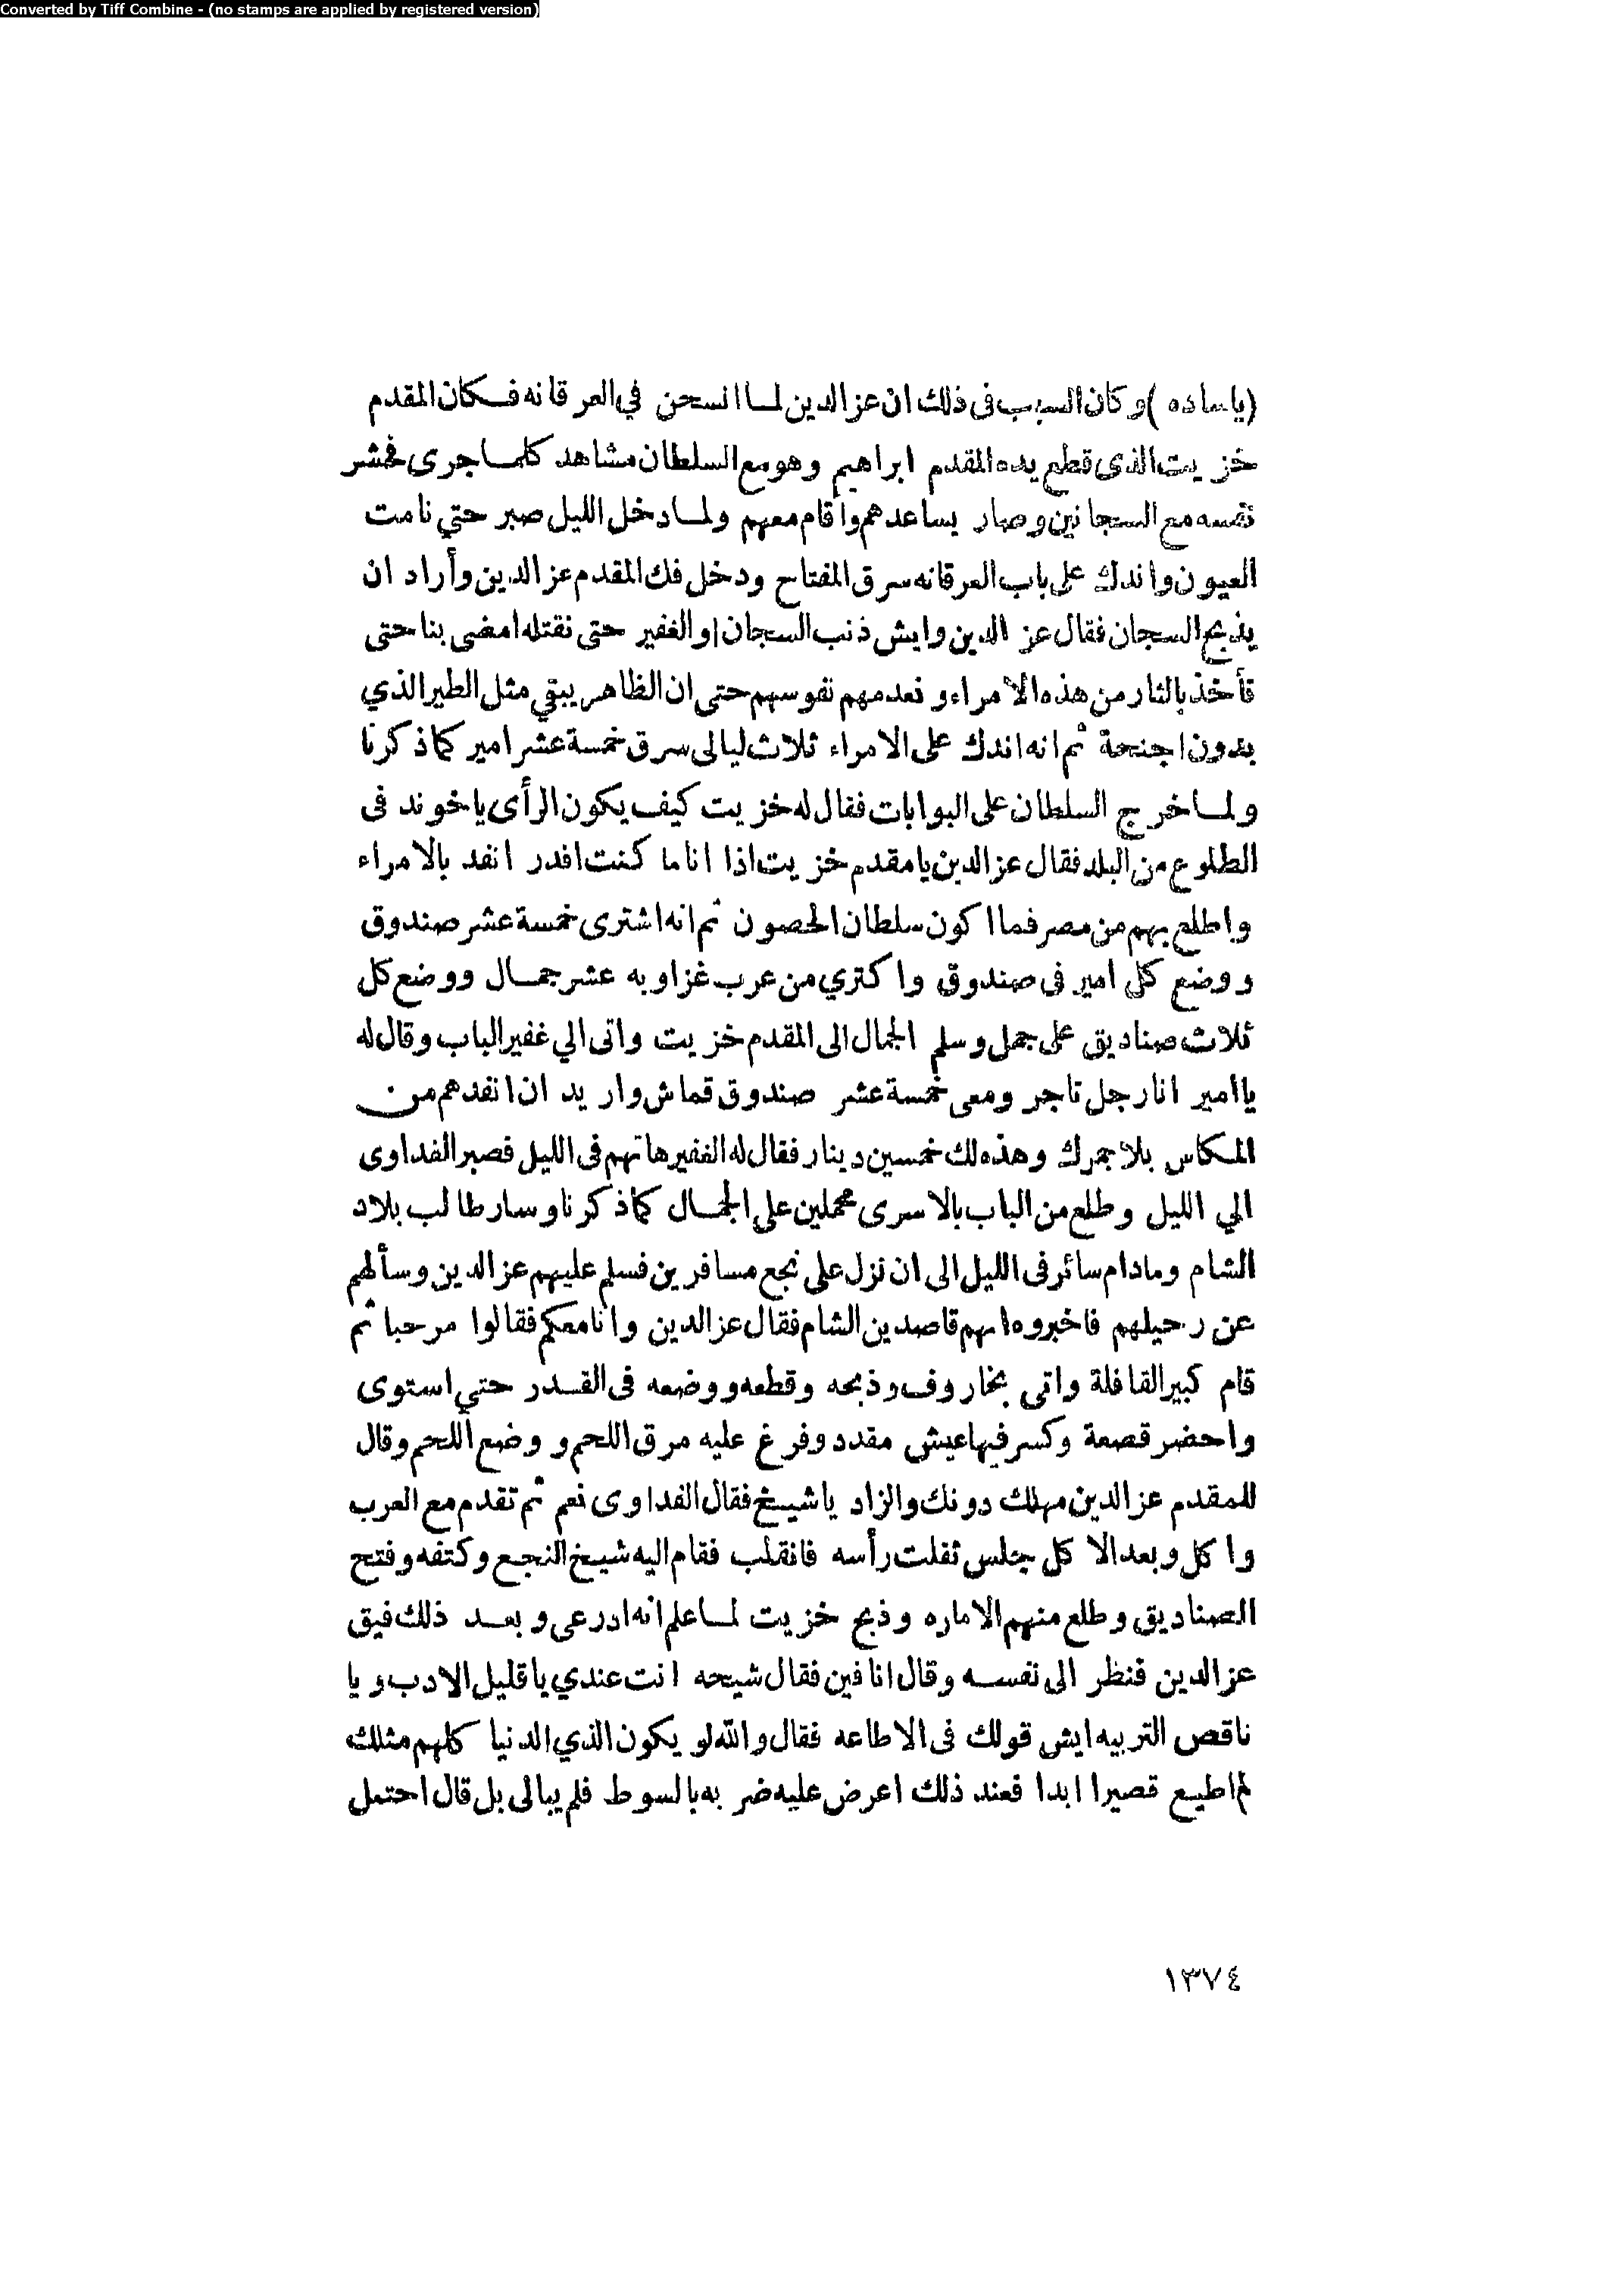 Converted by Tiff Combine - (no stamps are applied by registered version)
(ياساده )وكان السبب فى ذلك ان عز الدين لما انسجن في العرقانه فكان المقدم
خزيت الذى قطع يده المقدم ابراهيم وهومع السلطان مشاهد كلما جرى فحشر
نفسه مع السجانين وصار يساعدهم واقام معهم ولما دخل الليل صبر حتي نامت
العيون واندك على باب العرقانه سرق المفتاح ودخل فك المقدم عز الدين وأراد ان
يذبح السجان فقال عز الدين وايش ذنب السجان او الغفير حتى نقتله امضى بنا حتى
نأخذ بالثار من هذه الامراء ونعدمهم نفوسهم حتى ان الظاهر يبقي مثل الطير الذي
بدون اجنحة ثم انه اندك على الامراء ثلاث ليالى سرق خمسة عشر امير كما ذكرنا
ولما خرج السلطان على البوابات فقال له خزيت كيف يكون الرأى ياخوند فى
الطلوع من البلد فقال عز الدين يامقدم خزيت اذا انا ما كنت اقدر انفد بالامراء
واطلع بهم من مصر فما اكون سلطان الحصون ثم انه اشترى خمسة عشر صندوق
ووضع كل امير فى صندوق واكتري من عرب غزاويه عشر جمال ووضع كل
ثلاث صناديق على جمل وسلم الجمال الى المقدم خزيت واتى الي غفير الباب وقال له
ياامير انارجل تاجر ومعى خمسة عشر صندوق قماش واريد ان انفدهم من
المكاس بلا جمرك وهذه لك خمسين دينار فقال له الغفير هاتهم فى الليل فصبر الفداوى
الي الليل وطلع من الباب بالاسرى محملين على الجمال كما ذكرنا وسار طالب بلاد
الشام ومادام سائر فى الليل الى ان نزل على نجع مسافرين فسلم عليهم عز الدين وسألهم
عن رحيلهم فاخبروه انهم قاصدين الشام فقال عز الدين وانا معكم فقالوا مرحبا ثم
قام كبير القافلة واتى بخاروف وذبحه وقطعه ووضعه فى القدر حتي استوى
واحضر قصعة وكسر فيها عيش مقدد وفرغ عليه مرق اللحم و وضع اللحم وقال
للمقدم عز الدين مهلك دونك والزاد ياشيخ فقال الفداوى نعم ثم تقدم مع العرب
واكل وبعد الاكل جلس ثقلت رأسه فانقلب فقام اليه شيخ النجع وكتفه وفتح
الصناديق وطلع منهم الاماره وذبح خزيت لما علم انه ادرعى وبعد ذلك فيق
عز الدين فنظر الى نفسه وقال انا فين فقال شيحه انت عندي ياقليل الادب ويا
ناقص التربيه ايش قولك فى الاطاعه فقال والله لو يكون الذي الدنيا كلهم مثلك
لم اطيع قصيرا ابدا فعند ذلك اعرض عليه ضربه بالسوط فلم يبالى بل قال احتمل
١٣٧٤